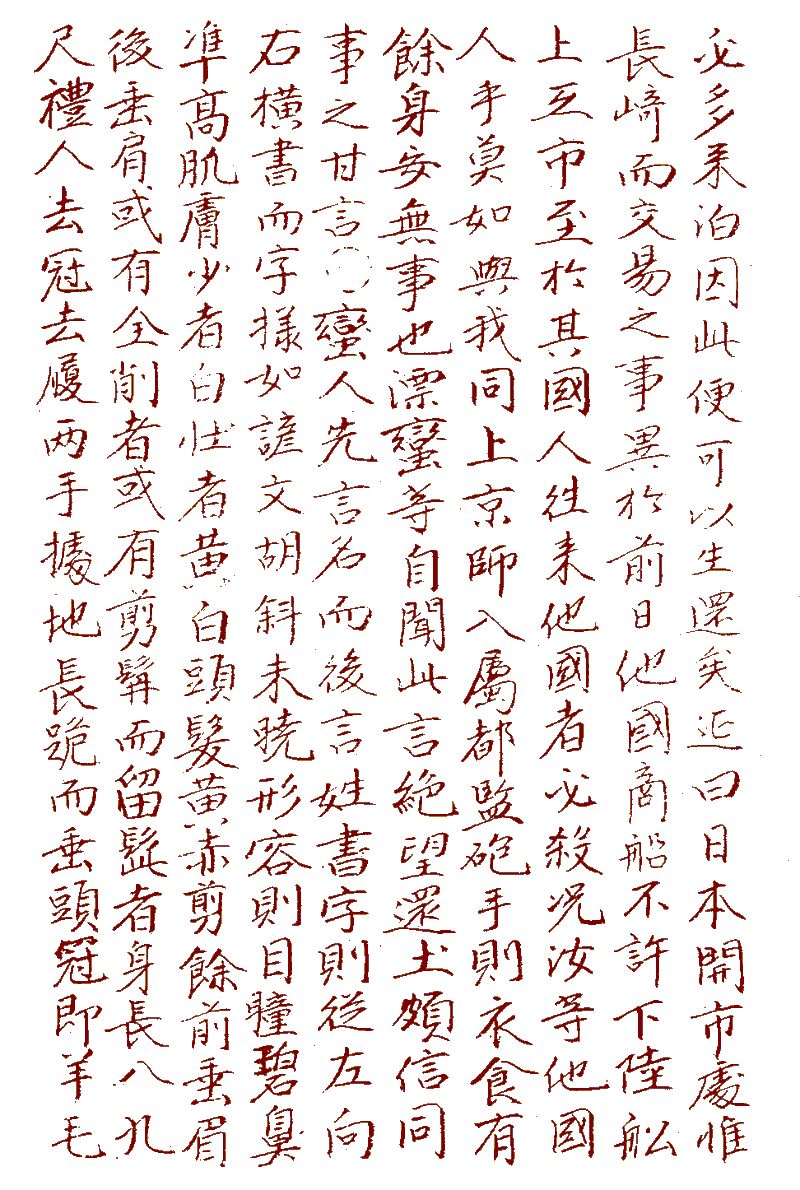 必多来泊因此便可以生還矣延曰日本開市處惟
長﨑而交易之事異於前日他國商船不許下陸舩
上互市至於其國人徃来他國者必殺况汝等他國
人乎莫如與我同上京師入屬都監砲手則衣食有
餘身安無事也漂蠻等自聞此言絶望還土頗信同
事之甘言〇蠻人先言名而後言姓書字則從左向
右横書而字様如諺文胡斜未曉形容則目瞳碧鼻
凖髙肌膚少者白壮者黄白頭髮黄赤剪餘前垂眉
後垂肩或有全削者或有剪髯而留髭者身長八九
尺禮人去冠去履两手據地長跪而垂頭冠即羊毛